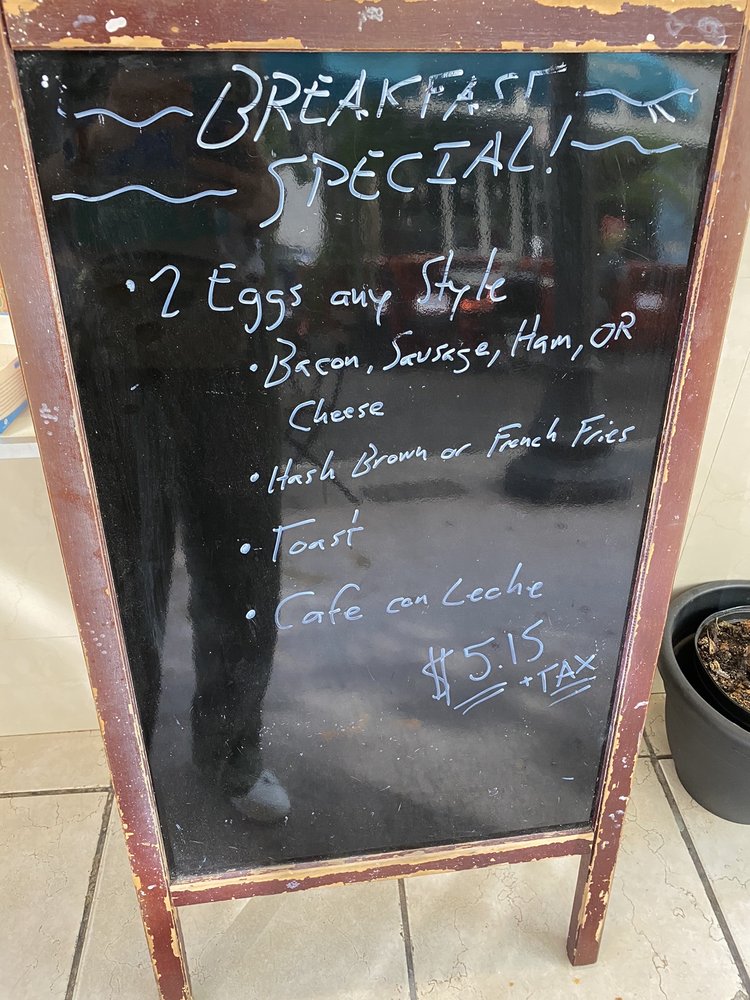 BREAKFAST
SPECIAL!
• 2 Eggs any Style
• Bacon, Sausage, Ham, OR
Cheese
• Hash Brown or French Fries
• Toast
• Cafe con Leche
$5.15
+ TAX